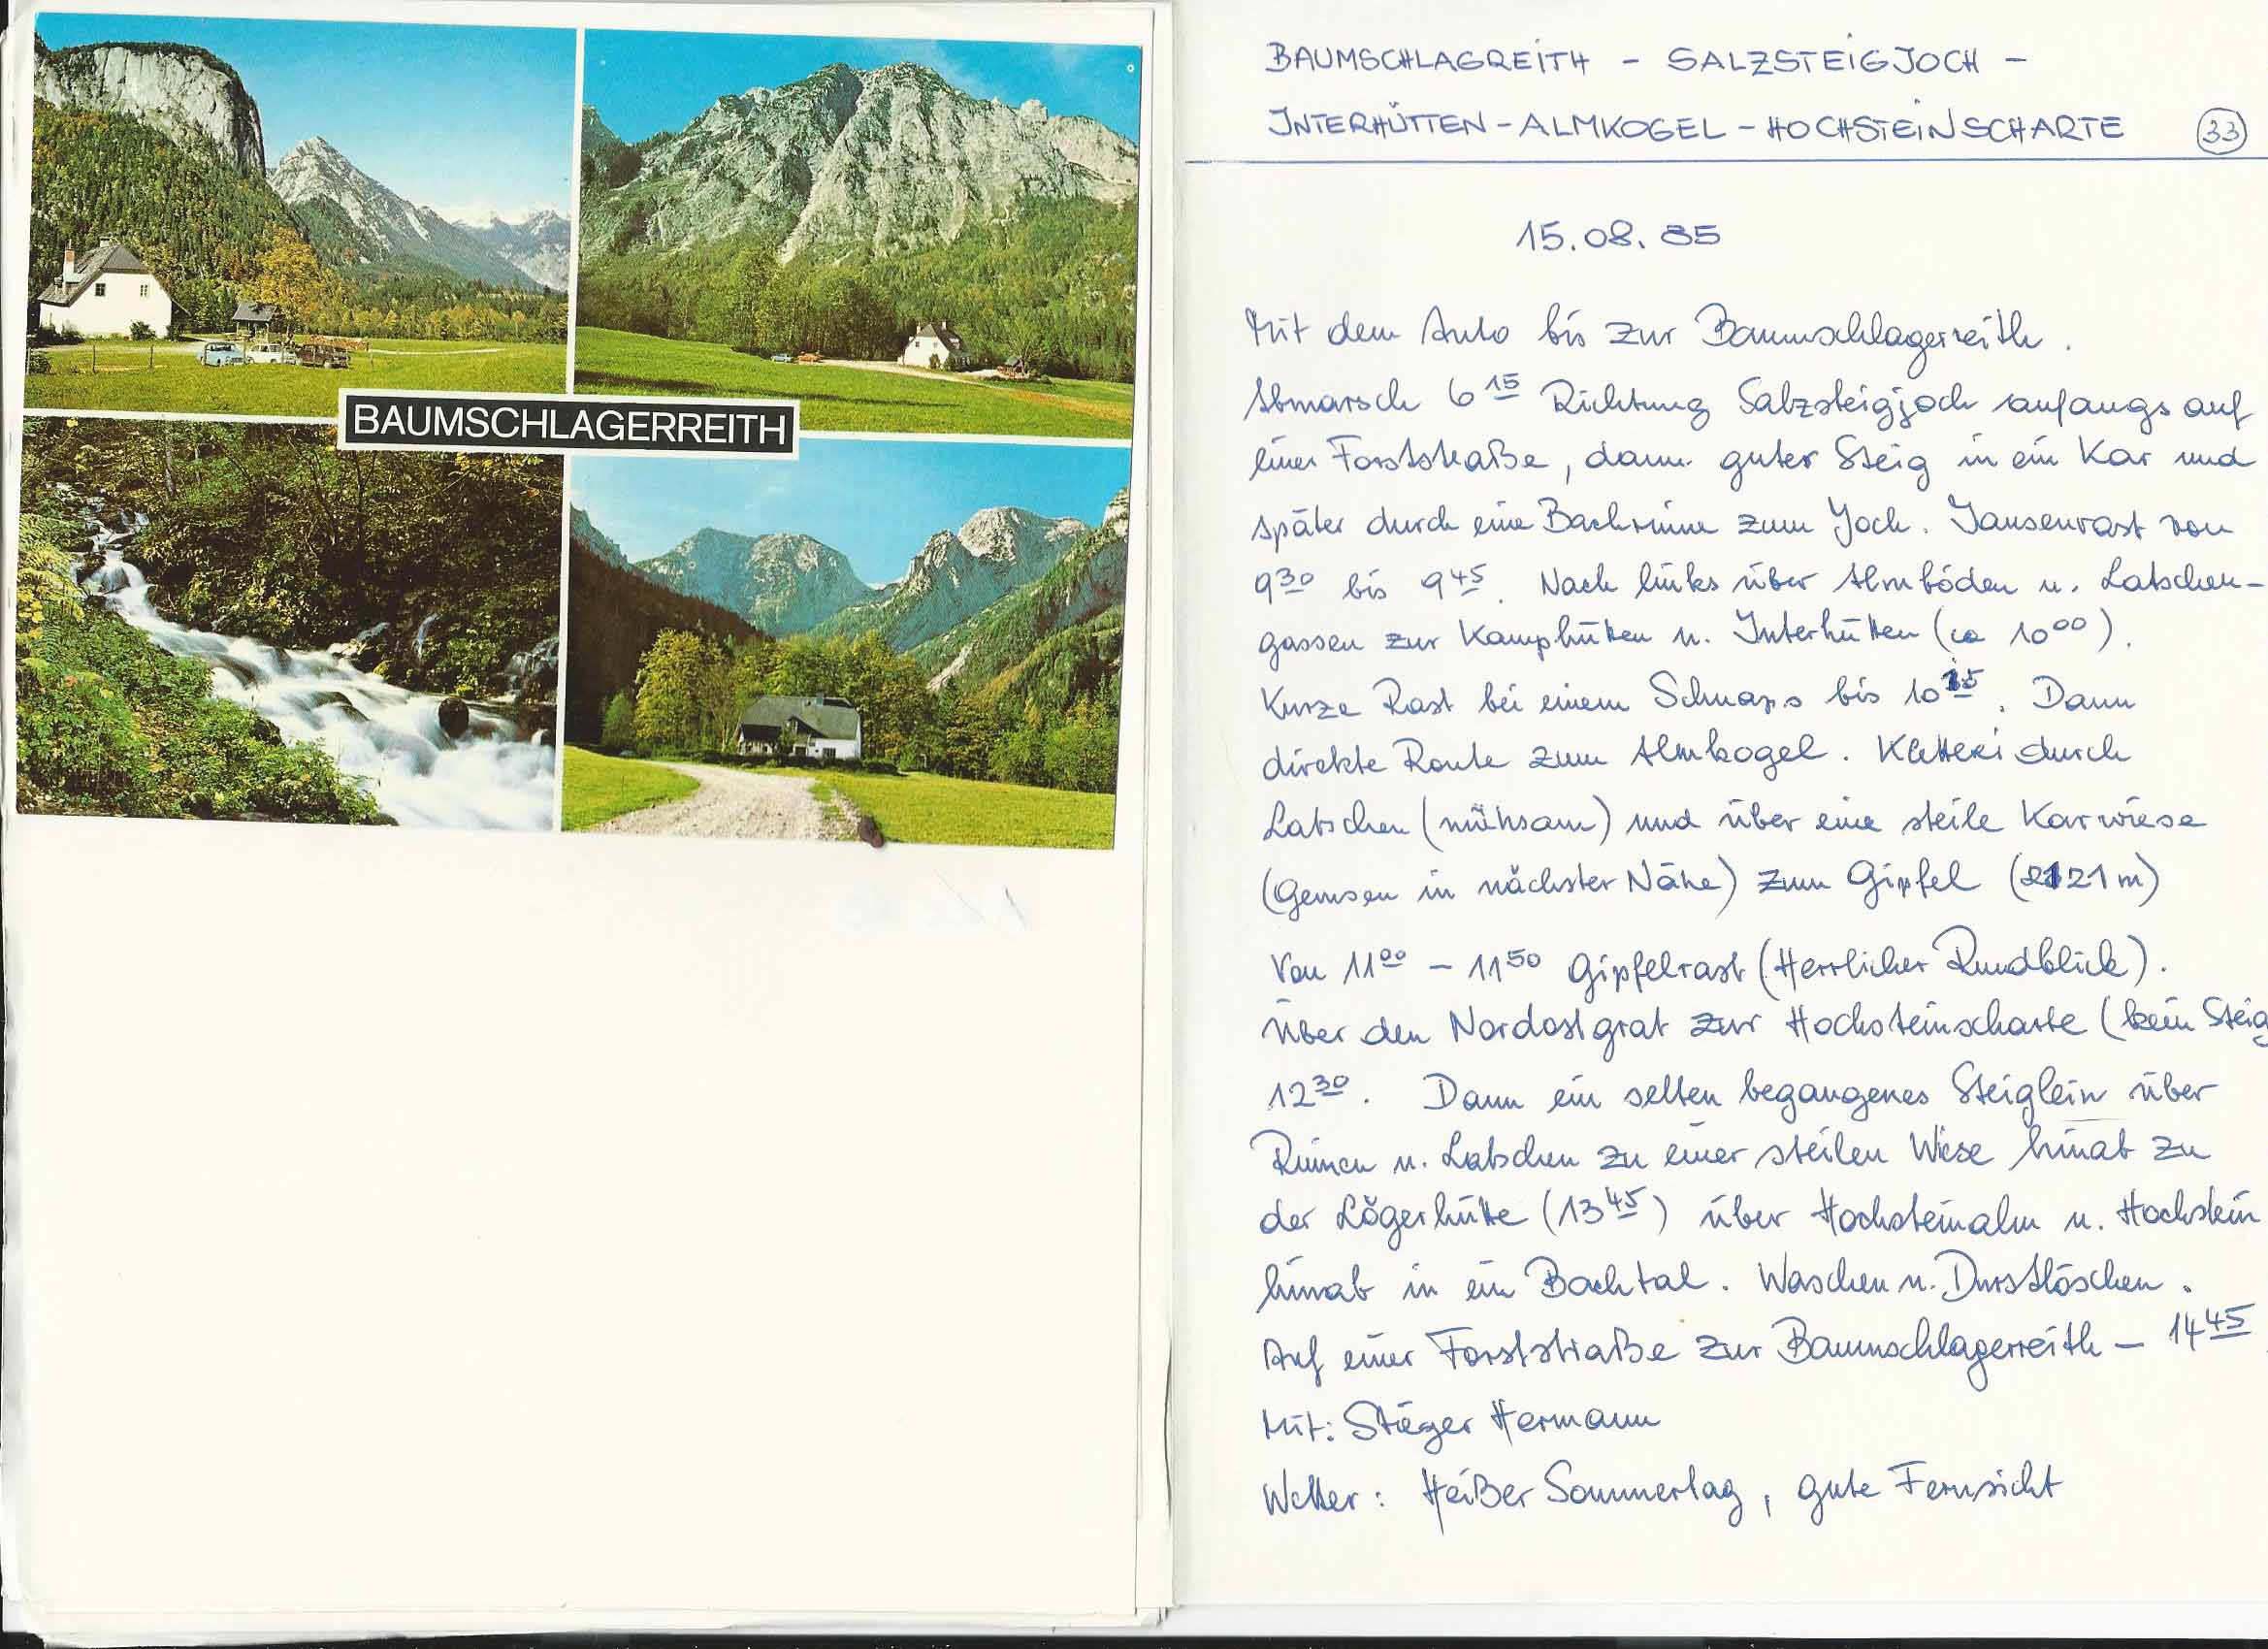 BAUMSCHLAGERREITH
BAUMSCHLAGREITH - SALZSTEIGJOCH -
INTERHÜTTEN - ALMKOGEL - HOCHSTEINSCHARTE 33
15.08.85
Mit dem Auto bis zur Baumschlagerreith.
Abmarsch 6 15 Richtung Salzsteigjoch anfangs auf
einer Forststraße, dann guter Steig in ein Kar und
später durch eine Bachrinne zum Joch. Jausenrast von
9 30 bis 9 45. Nach links über Almböden u. Latschen-
gassen zur Kamphütten u. Interhütten (ca 10 00).
Kurze Rast bei einem Schnaps bis 10 15. Dann
direkte Route zum Almkogel. Kletterei durch
Latschen (mühsam) und über eine steile Karwiese
(Gemsen in nächster Nähe) zum Gipfel (2121 m)
Von 11 00 - 11 50 Gipfelrast (Herrlicher Rundblick).
Über den Nordostgrat zur Hochsteinscharte (kein Steig
12 30. Dann ein selten begangenes Steiglein über
Rinnen u. Latschen zu einer steilen Wiese hinab zu
der Lögerhütte (13 45) über Hochsteinalm u. Hochstein
hinab in ein Bachtal. Waschen u. Durstlöschen.
Auf einer Forststraße zur Baumschlagerreith - 14 45
Mit: Stieger Hermann
Wetter: Heißer Sommertag, gute Fernsicht